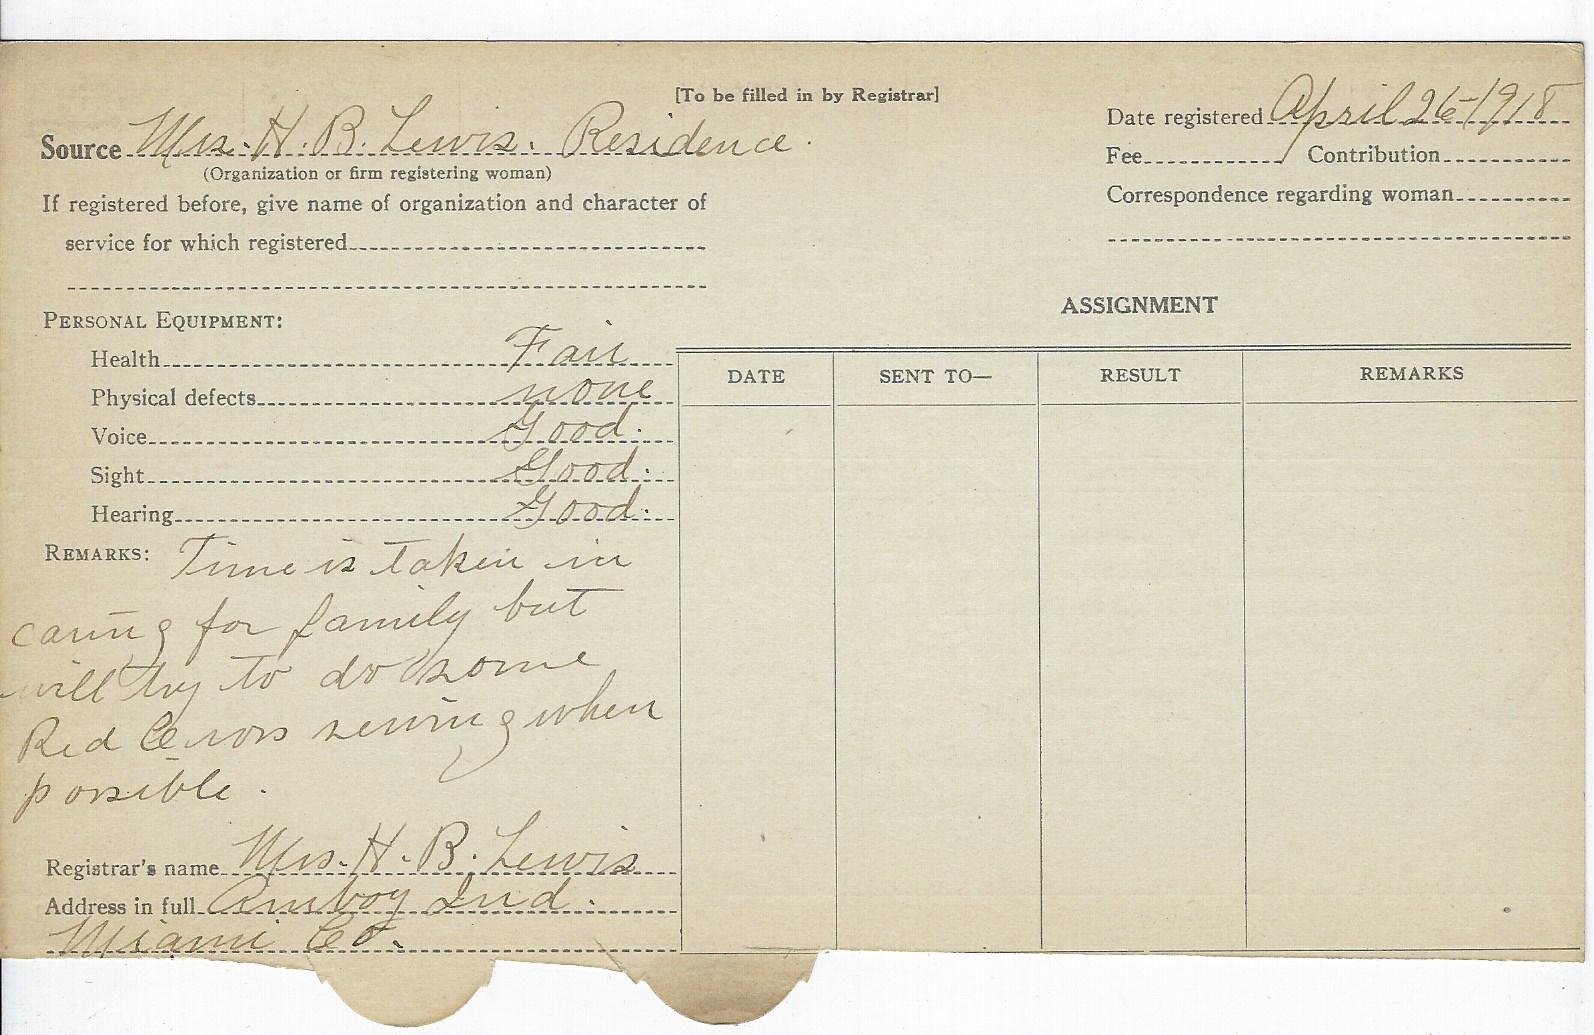 [To be filled in by Registrar]
Source Mrs. H. B. Lewis. Residence.
(Organization or firm registering woman)
If registered before, give name of organization and character of
service for which registered
Date registered April 26-1918
Fee Contribution
Correspondence regarding woman
PERSONAL EQUIPMENT:
Health Fair
Physical defects none
Voice Good.
Sight Good.
Hearing Good.
REMARKS: Time is taken in
caring for family but
will try to do some
Red Cross sewing when
possible.
Registrar's name Mrs. H. B. Lewis
Address in full Amboy Ind.
Miami Co.
ASSIGNMENT
DATE SENT TO— RESULT REMARKS